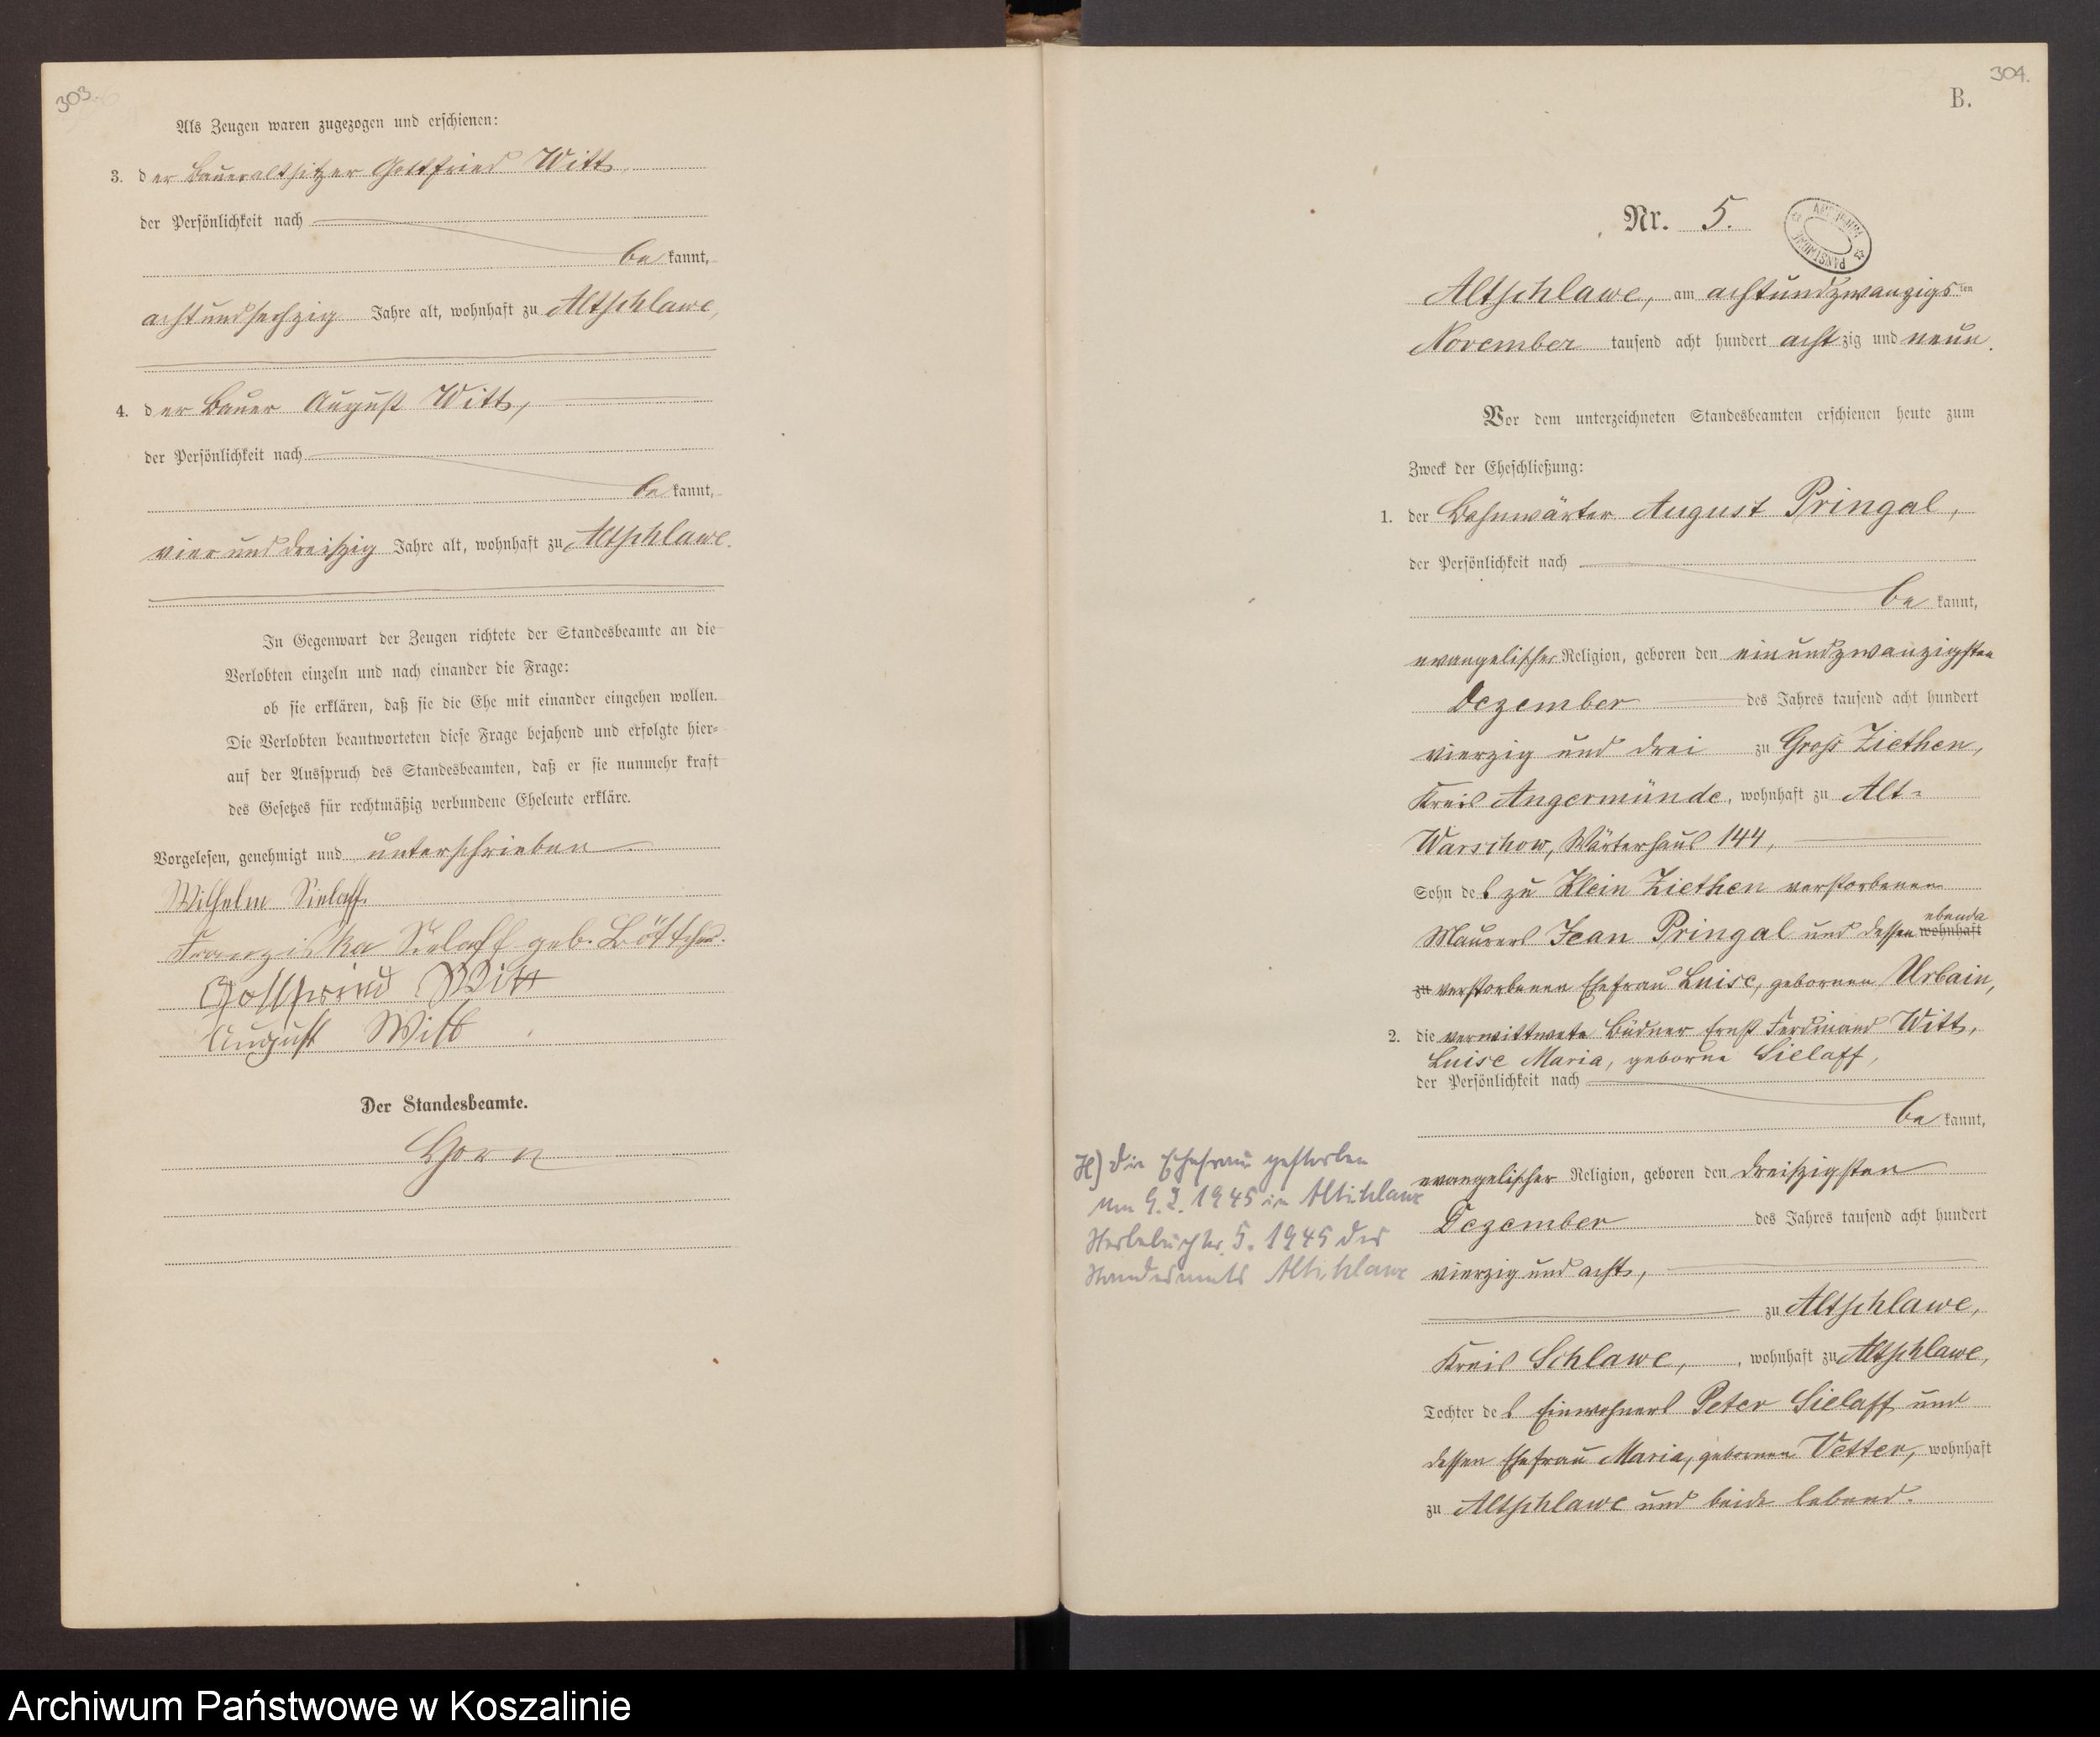 303.
Als Zeugen waren zugezogen und erschienen:
3. der Baueraltsitzer Gottfried Witt,
der Persönlichkeit nach
be kannt,
achtundsechzig Jahre alt, wohnhaft zu Altschlawe,
4. der Bauer August Witt,
der Persönlichkeit nach
be kannt,
vierunddreißig Jahre alt, wohnhaft zu Altschlawe.
In Gegenwart der Zeugen richtete der Standesbeamte an die
Verlobten einzeln und nach einander die Frage:
ob sie erklären, daß sie die Ehe mit einander eingehen wollen.
Die Verlobten beantworteten diese Frage bejahend und erfolgte hier-
auf der Ausspruch des Standesbeamten, daß er sie nunmehr kraft
des Gesetzes für rechtmäßig verbundene Eheleute erkläre.
Vorgelesen, genehmigt und unterschrieben
Wilhelm Sielaff.
Franziska Sielaff geb. Böttcher.
Gottfried Witt
August Witt
Der Standesbeamte.
Horn
304.
B.
Nr. 5.
Altschlawe, am achtundzwanzigsten
November tausend acht hundert achtzig und neun.
Vor dem unterzeichneten Standesbeamten erschienen heute zum
Zweck der Eheschließung:
1. der Bahnwärter August Pringal,
der Persönlichkeit nach
be kannt,
evangelischer Religion, geboren den einundzwanzigsten
Dezember des Jahres tausend acht hundert
vierzig und drei zu Groß Ziethen,
Kreis Angermünde, wohnhaft zu Alt-
Warschow, Wärterhaus 144,
Sohn des zu Klein Ziethen verstorbenen
Maurers Jean Pringal und dessen wohnhaft ebenda
zu verstorbenen Ehefrau Luise, gebornen Urbain,
2. die verwittwete Büdner Ernst Ferdinand Witt,
Luise Maria, geborne Sielaff,
der Persönlichkeit nach
be kannt,
evangelischer Religion, geboren den dreißigsten
Dezember des Jahres tausend acht hundert
vierzig und acht,
zu Altschlawe,
Kreis Schlawe, wohnhaft zu Altschlawe,
Tochter des Einwohners Peter Sielaff und
dessen Ehefrau Maria, gebornen Vetter, wohnhaft
zu Altschlawe und beide lebend.
H) Die Ehefrau gestorben
am 9.2.1945 in Altschlawe
Sterbebuch Nr. 5. 1945 des
Standesamts Altschlawe
Archiwum Państwowe w Koszalinie